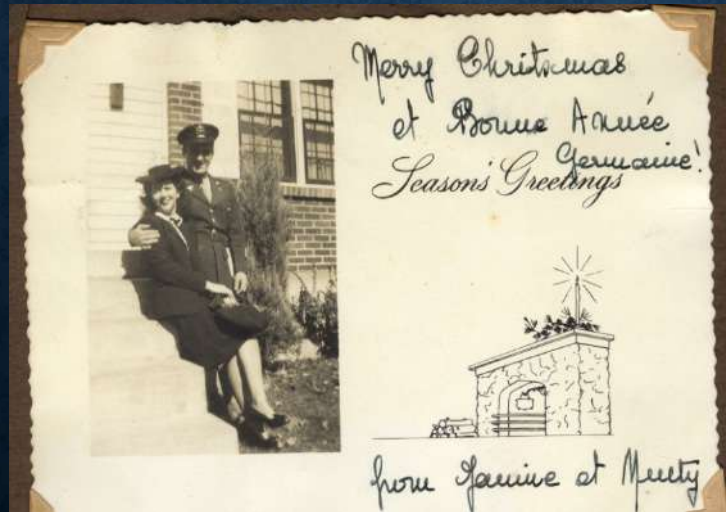 Merry Chritsmas
et Bonne Année
Germaine!
Seasons' Greetings
from Janine et Murty